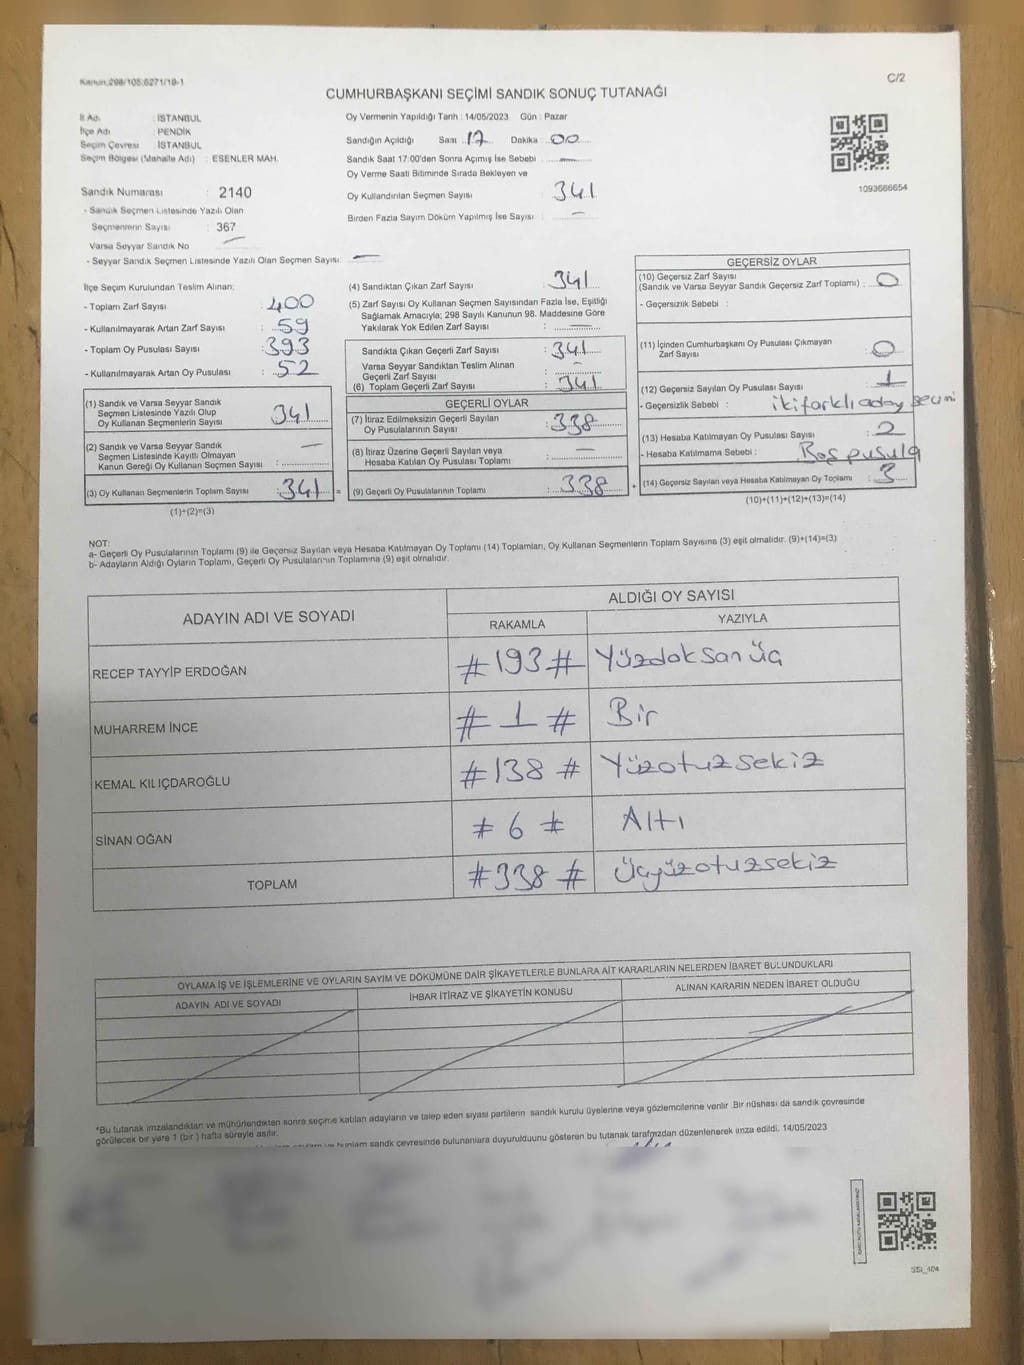 Kanun:298/105;6271/18-1
C/2
CUMHURBAŞKANI SEÇİMİ SANDIK SONUÇ TUTANAĞI
İl Adı : İSTANBUL
İlçe Adı : PENDİK
Seçim Çevresi : İSTANBUL
Seçim Bölgesi (Mahalle Adı) : ESENLER MAH.
Sandık Numarası : 2140
- Sandık Seçmen Listesinde Yazılı Olan
Seçmenlerin Sayısı : 367
Varsa Seyyar Sandık No —
- Seyyar Sandık Seçmen Listesinde Yazılı Olan Seçmen Sayısı: —
Oy Vermenin Yapıldığı Tarih : 14/05/2023 Gün : Pazar
Sandığın Açıldığı Saat : 17 Dakika : 00
Sandık Saat 17:00'den Sonra Açımış İse Sebebi : —
Oy Verme Saati Bitiminde Sırada Bekleyen ve
Oy Kullandırılan Seçmen Sayısı : 341
Birden Fazla Sayım Döküm Yapılmış İse Sayısı : —
1093666654
İlçe Seçim Kurulundan Teslim Alınan;
- Toplam Zarf Sayısı : 400
- Kullanılmayarak Artan Zarf Sayısı : 59
- Toplam Oy Pusulası Sayısı : 393
- Kullanılmayarak Artan Oy Pusulası : 52
(1) Sandık ve Varsa Seyyar Sandık
Seçmen Listesinde Yazılı Olup
Oy Kullanan Seçmenlerin Sayısı : 341
(2) Sandık ve Varsa Seyyar Sandık
Seçmen Listesinde Kayıtlı Olmayan
Kanun Gereği Oy Kullanan Seçmen Sayısı : —
(3) Oy Kullanan Seçmenlerin Toplam Sayısı : 341 =
(1)+(2)=(3)
(4) Sandıktan Çıkan Zarf Sayısı : 341
(5) Zarf Sayısı Oy Kullanan Seçmen Sayısından Fazla İse, Eşitliği
Sağlamak Amacıyla; 298 Sayılı Kanunun 98. Maddesine Göre
Yakılarak Yok Edilen Zarf Sayısı : —
Sandıkta Çıkan Geçerli Zarf Sayısı : 341
Varsa Seyyar Sandıktan Teslim Alınan
Geçerli Zarf Sayısı : —
(6) Toplam Geçerli Zarf Sayısı : 341
GEÇERLİ OYLAR
(7) İtiraz Edilmeksizin Geçerli Sayılan
Oy Pusulalarının Sayısı : 338
(8) İtiraz Üzerine Geçerli Sayılan veya
Hesaba Katılan Oy Pusulası Toplamı : —
(9) Geçerli Oy Pusulalarının Toplamı : 338 +
GEÇERSİZ OYLAR
(10) Geçersiz Zarf Sayısı
(Sandık ve Varsa Seyyar Sandık Geçersiz Zarf Toplamı) : 0
- Geçersizlik Sebebi :
(11) İçinden Cumhurbaşkanı Oy Pusulası Çıkmayan
Zarf Sayısı : 0
(12) Geçersiz Sayılan Oy Pusulası Sayısı : 1
- Geçersizlik Sebebi : iki farklı aday seçimi
(13) Hesaba Katılmayan Oy Pusulası Sayısı : 2
- Hesaba Katılmama Sebebi : Boş pusula
(14) Geçersiz Sayılan veya Hesaba Katılmayan Oy Toplamı : 3
(10)+(11)+(12)+(13)=(14)
NOT:
a- Geçerli Oy Pusulalarının Toplamı (9) ile Geçersiz Sayılan veya Hesaba Katılmayan Oy Toplamı (14) Toplamları, Oy Kullanan Seçmenlerin Toplam Sayısına (3) eşit olmalıdır. (9)+(14)=(3)
b- Adayların Aldığı Oyların Toplamı, Geçerli Oy Pusulalarının Toplamına (9) eşit olmalıdır.
ADAYIN ADI VE SOYADI
ALDIĞI OY SAYISI
RAKAMLA YAZIYLA
RECEP TAYYİP ERDOĞAN #193# Yüzdoksanüç
MUHARREM İNCE # 1 # Bir
KEMAL KILIÇDAROĞLU #138 # Yüzotuzsekiz
SİNAN OĞAN # 6 # Altı
TOPLAM #338 # Üçyüzotuzsekiz
OYLAMA İŞ VE İŞLEMLERİNE VE OYLARIN SAYIM VE DÖKÜMÜNE DAİR ŞİKAYETLERLE BUNLARA AİT KARARLARIN NELERDEN İBARET BULUNDUKLARI
ADAYIN ADI VE SOYADI İHBAR İTİRAZ VE ŞİKAYETİN KONUSU ALINAN KARARIN NEDEN İBARET OLDUĞU
*Bu tutanak imzalandıktan ve mühürlendikten sonra seçime katılan adayların ve talep eden siyasi partilerin sandık kurulu üyelerine veya gözlemcilerine verilir .Bir nüshası da sandık çevresinde
görülecek bir yere 1 (bir ) hafta süreyle asılır.
sandık çevresinde bulunanlara duyurulduunu gösteren bu tutanak tarafınızdan düzenlenerek imza edildi. 14/05/2023